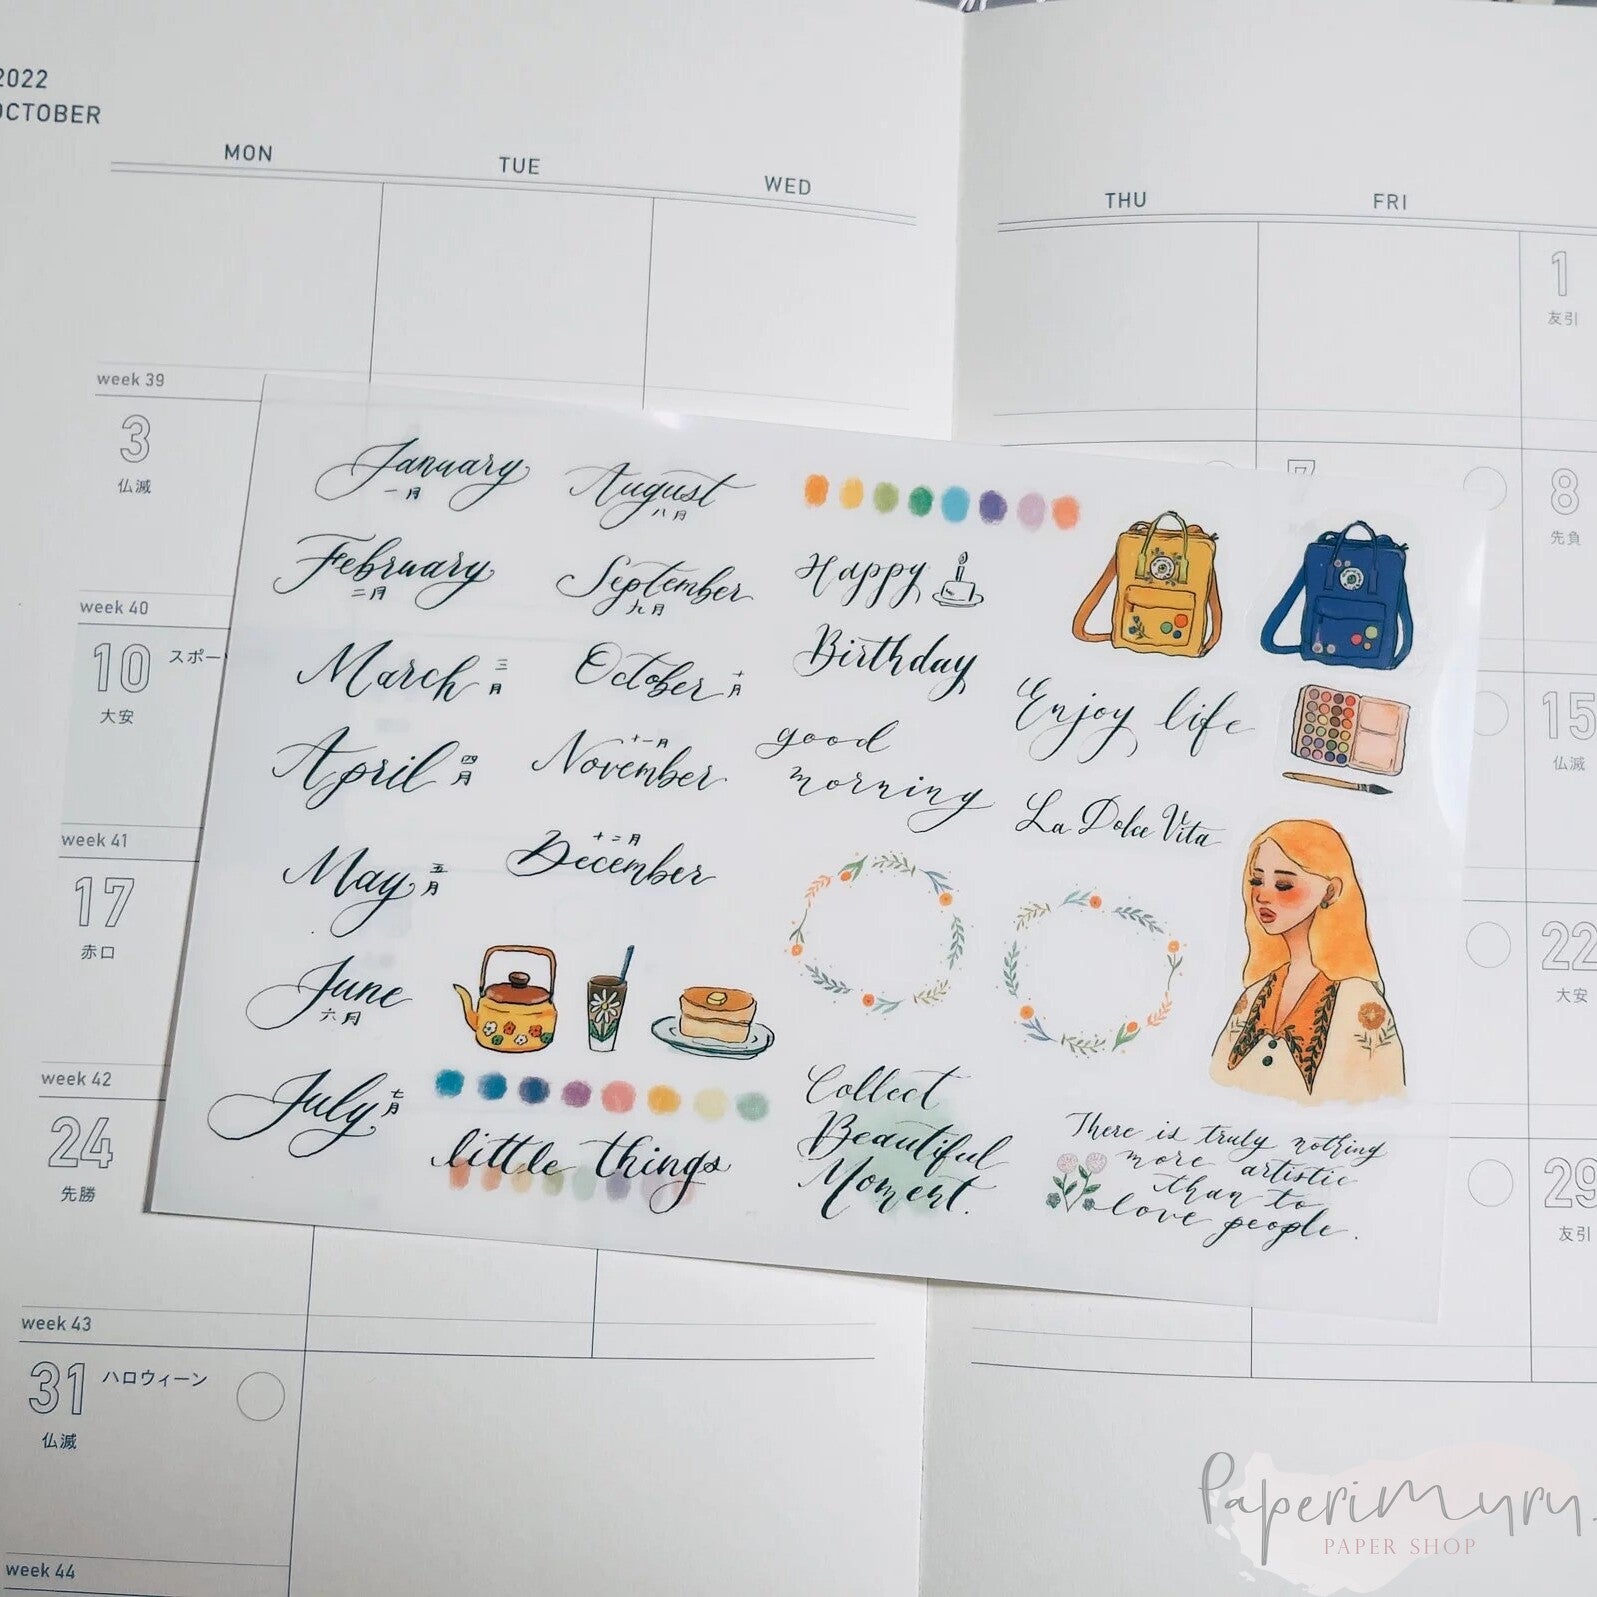 2022
OCTOBER
MON
TUE
WED
THU
FRI
1
友引
week 39
3
仏滅
7
8
先負
week 40
10
スポー
大安
15
仏滅
week 41
17
赤口
22
大安
week 42
24
先勝
29
友引
week 43
31
ハロウィーン
仏滅
week 44
January
一月
February
二月
March 三月
April 四月
May 五月
June
六月
July 七月
August
八月
September
九月
October 十月
十一月
November
十二月
December
Happy
Birthday
good
morning
Enjoy life
La Dolce Vita
little things
Collect
Beautiful
Moment.
There is truly nothing
more artistic
than to
love people.
PaperiMyry
PAPER SHOP